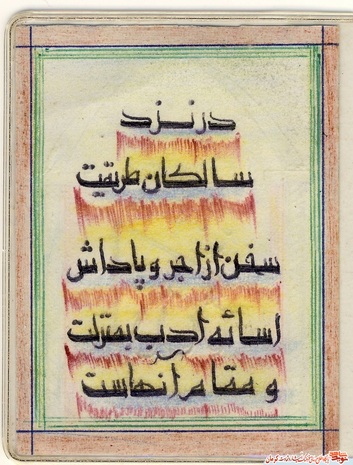 در نزد
سالکان طریقت
سخن از اجر و پاداش
اسائه ادب بمنزلت
و مقام انهاست